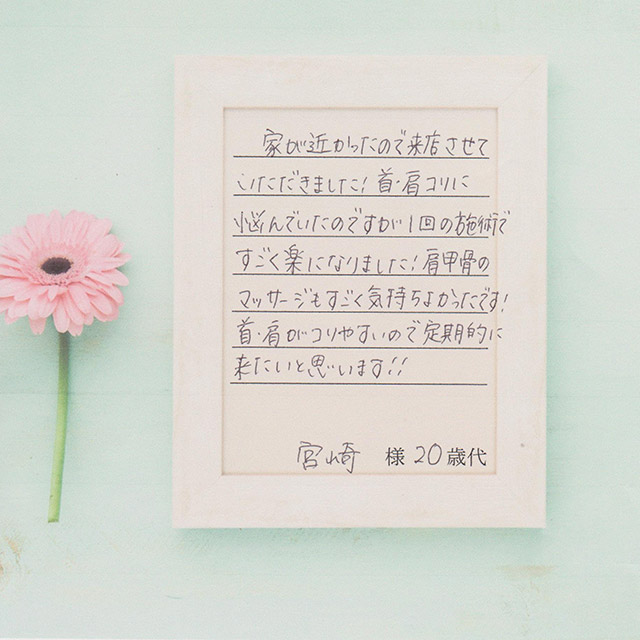 家が近かったので来店させて
いただきました!首・肩コリに
悩んでいたのですが1回の施術で
すごく楽になりました!肩甲骨の
マッサージもすごく気持ちよかったです!
首・肩がコリやすいので定期的に
来たいと思います!!
宮崎 様 20歳代